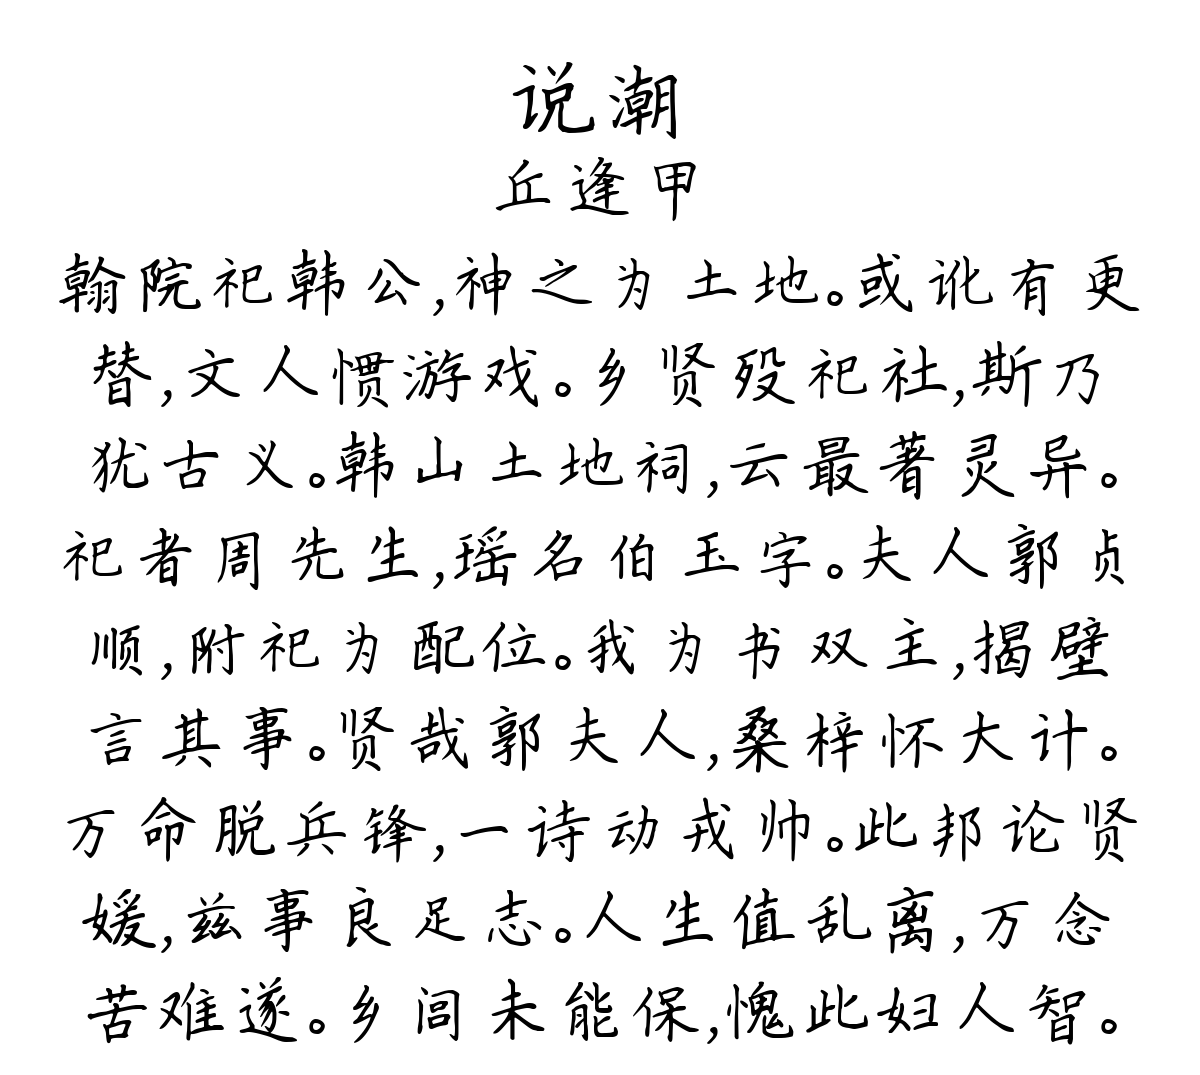 说潮
丘逢甲
翰院祀韩公,神之为土地。或讹有更
替,文人惯游戏。乡贤殁祀社,斯乃
犹古义。韩山土地祠,云最著灵异。
祀者周先生,瑶名伯玉字。夫人郭贞
顺,附祀为配位。我为书双主,揭壁
言其事。贤哉郭夫人,桑梓怀大计。
万命脱兵锋,一诗动戎帅。此邦论贤
媛,兹事良足志。人生值乱离,万念
苦难遂。乡闾未能保,愧此妇人智。